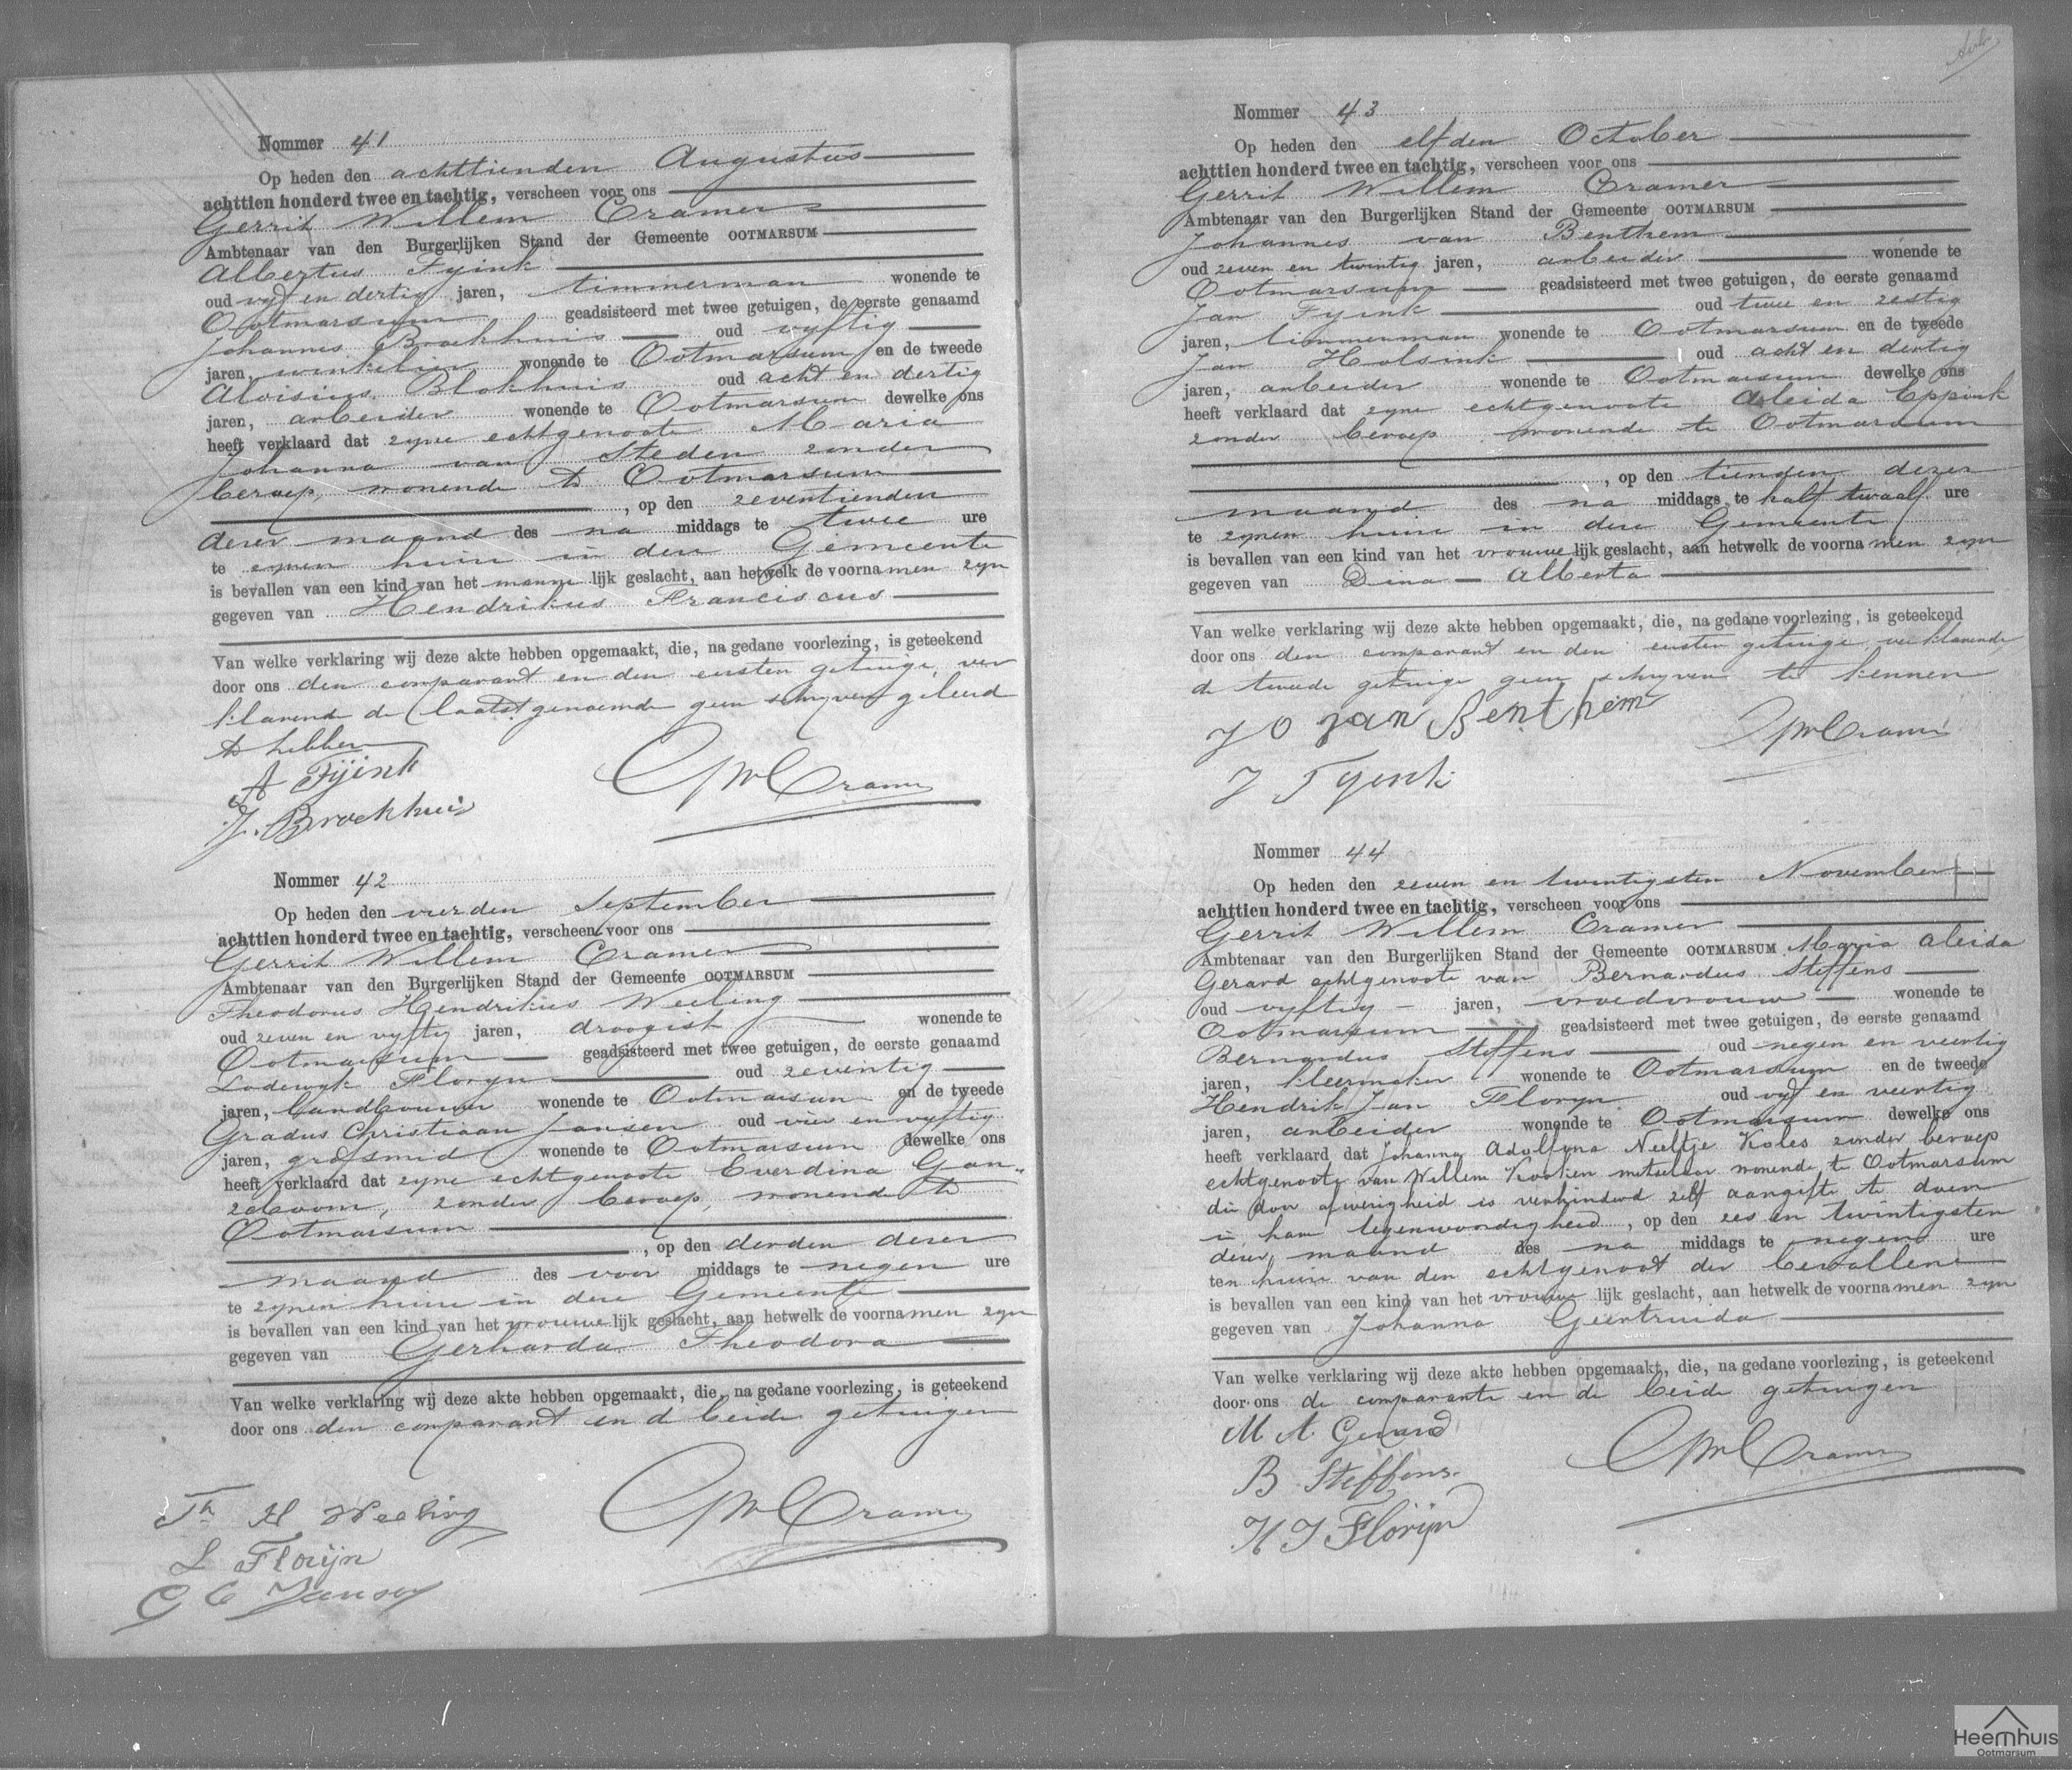 Nommer 41
Op heden den achttienden Augustus
achttien honderd twee en tachtig, verscheen voor ons
Gerrit Willem Cramer
Ambtenaar van den Burgerlijken Stand der Gemeente OOTMARSUM
Albertus Fyink
oud vyf en dertig jaren, timmerman wonende te
Ootmarsum geadsisteerd met twee getuigen, de eerste genaamd
Johannes Broekhuis oud vyftig
jaren, winkelier wonende te Ootmarsum en de tweede
Aloisius Blokhuis oud acht en dertig
jaren, arbeider wonende te Ootmarsum dewelke ons
heeft verklaard dat zyne echtgenoote Maria
Johanna van Steden zonder
beroep, wonende te Ootmarsum
, op den zeventienden
dezer maand des na middags te twee ure
te zynen huize in deze Gemeente
is bevallen van een kind van het manne lijk geslacht, aan hetwelk de voorna men zyn
gegeven van Hendrikus Franciscus
Van welke verklaring wij deze akte hebben opgemaakt, die, na gedane voorlezing, is geteekend
door ons den comparant en den eersten getuige, ver
klarende de laatstgenoemde geen schryven geleerd
te hebben
A Fijink
J. Broekhuis
GWCramer
Nommer 42
Op heden den vierden September
achttien honderd twee en tachtig, verscheen voor ons
Gerrit Willem Cramer
Ambtenaar van den Burgerlijken Stand der Gemeente OOTMARSUM
Theodorus Hendrikus Weeling
oud zeven en vyftig jaren, droogist wonende te
Ootmarsum geadsisteerd met twee getuigen, de eerste genaamd
Lodewyk Floryn oud zeventig
jaren, landbouwer wonende te Ootmarsum en de tweede
Gradus Christiaan Jansen oud vier en vyftig
jaren, grofsmid wonende te Ootmarsum dewelke ons
heeft verklaard dat zyne echtgenoote Everdina Gan-
zeboom, zonder beroep, wonende te
Ootmarsum
, op den derden dezer
maand des voor middags te negen ure
te zynen huize in deze Gemeente
is bevallen van een kind van het vrouwe lijk geslacht, aan hetwelk de voorna men zyn
gegeven van Gerharda Theodora
Van welke verklaring wij deze akte hebben opgemaakt, die, na gedane voorlezing, is geteekend
door ons den comparant en d beide getuigen
Th H Weeling
L Florijn
G C Jansen
GWCramer
Nommer 43
Op heden den elfden October
achttien honderd twee en tachtig, verscheen voor ons
Gerrit Willem Cramer
Ambtenaar van den Burgerlijken Stand der Gemeente OOTMARSUM
Johannes van Benthem
oud zeven en twintig jaren, arbeider wonende te
Ootmarsum geadsisteerd met twee getuigen, de eerste genaamd
Jan Fyink oud twee en zestig
jaren, timmerman wonende te Ootmarsum en de tweede
Jan Holsink oud acht en dertig
jaren, arbeider wonende te Ootmarsum dewelke ons
heeft verklaard dat zyne echtgenoote Aleida Eppink
zonder beroep wonende te Ootmarsum
, op den tienden dezer
maand des na middags te half twaalf ure
te zynen huize in deze Gemeente
is bevallen van een kind van het vrouwe lijk geslacht, aan hetwelk de voorna men zyn
gegeven van Dina Alberta
Van welke verklaring wij deze akte hebben opgemaakt, die, na gedane voorlezing, is geteekend
door ons den comparant en den eersten getuige verklarende
de tweede getuige geen schryven te kennen
J O van Benthem
J Fyink
GWCramer
Nommer 44
Op heden den zeven en twintigsten November
achttien honderd twee en tachtig, verscheen voor ons
Gerrit Willem Cramer
Ambtenaar van den Burgerlijken Stand der Gemeente OOTMARSUM Maria Aleida
Gerard echtgenoote van Bernardus Steffens
oud vyftig jaren, vroedvrouw wonende te
Ootmarsum geadsisteerd met twee getuigen, de eerste genaamd
Bernardus Steffens oud negen en veertig
jaren, kleermaker wonende te Ootmarsum en de tweede
Hendrik Jan Floryn oud vyf en veertig
jaren, arbeider wonende te Ootmarsum dewelke ons
heeft verklaard dat Johanna Adolfyna Neeltje Koles zonder beroep
echtgenoote van Willem Kooken metselaar wonende te Ootmarsum
die door afwezigheid is verhinderd zelf aangifte te doen
in haar tegenwoordigheid, op den zes en twintigsten
dezer maand des na middags te negen ure
ten huize van den echtgenoot der bevallene
is bevallen van een kind van het vrouwe lijk geslacht, aan hetwelk de voorna men zyn
gegeven van Johanna Geertruida
Van welke verklaring wij deze akte hebben opgemaakt, die, na gedane voorlezing, is geteekend
door ons de comparante en de beide getuigen
M A Gerard
B Steffens
H J Florijn
GWCramer
Heemhuis
Ootmarsum